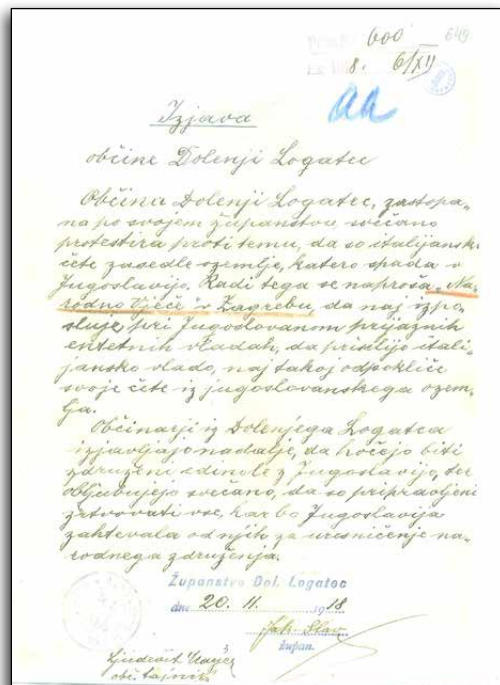 600 649
8. 6/XII
aa
Izjava
občine Dolenji Logatec
Občina Dolenji Logatec, zastopa„
na po svojem županstvu, svečano
protestira proti temu, da so italijansk.
čete zasedle ozemlje, katero spada v
Jugoslavijo. Radi tega se naproša „Na„
rodno Vječe v Zagrebu, da naj izpo„
sluje, pri Jugoslovanom prijaznih
ententnih vladah, da prisilijo itali„
jansko vlado, naj takoj odpokliče
svoje čete iz jugoslovanskega ozem„
lja.
Občinarji iz Dolenjega Logatca
izjavljajo nadalje, da hočejo biti
združeni edinole z Jugoslavijo, ter
obljubujejo svečano, da so pripravljeni
žrtvovati vse, kar bo Jugoslavija
zahtevala od njih za uresničenje na„
rodnega združenja.
Županstvo Dol. Logatec
dne 20. 11. 1918
župan.
Ljudevit
obč. tajnik